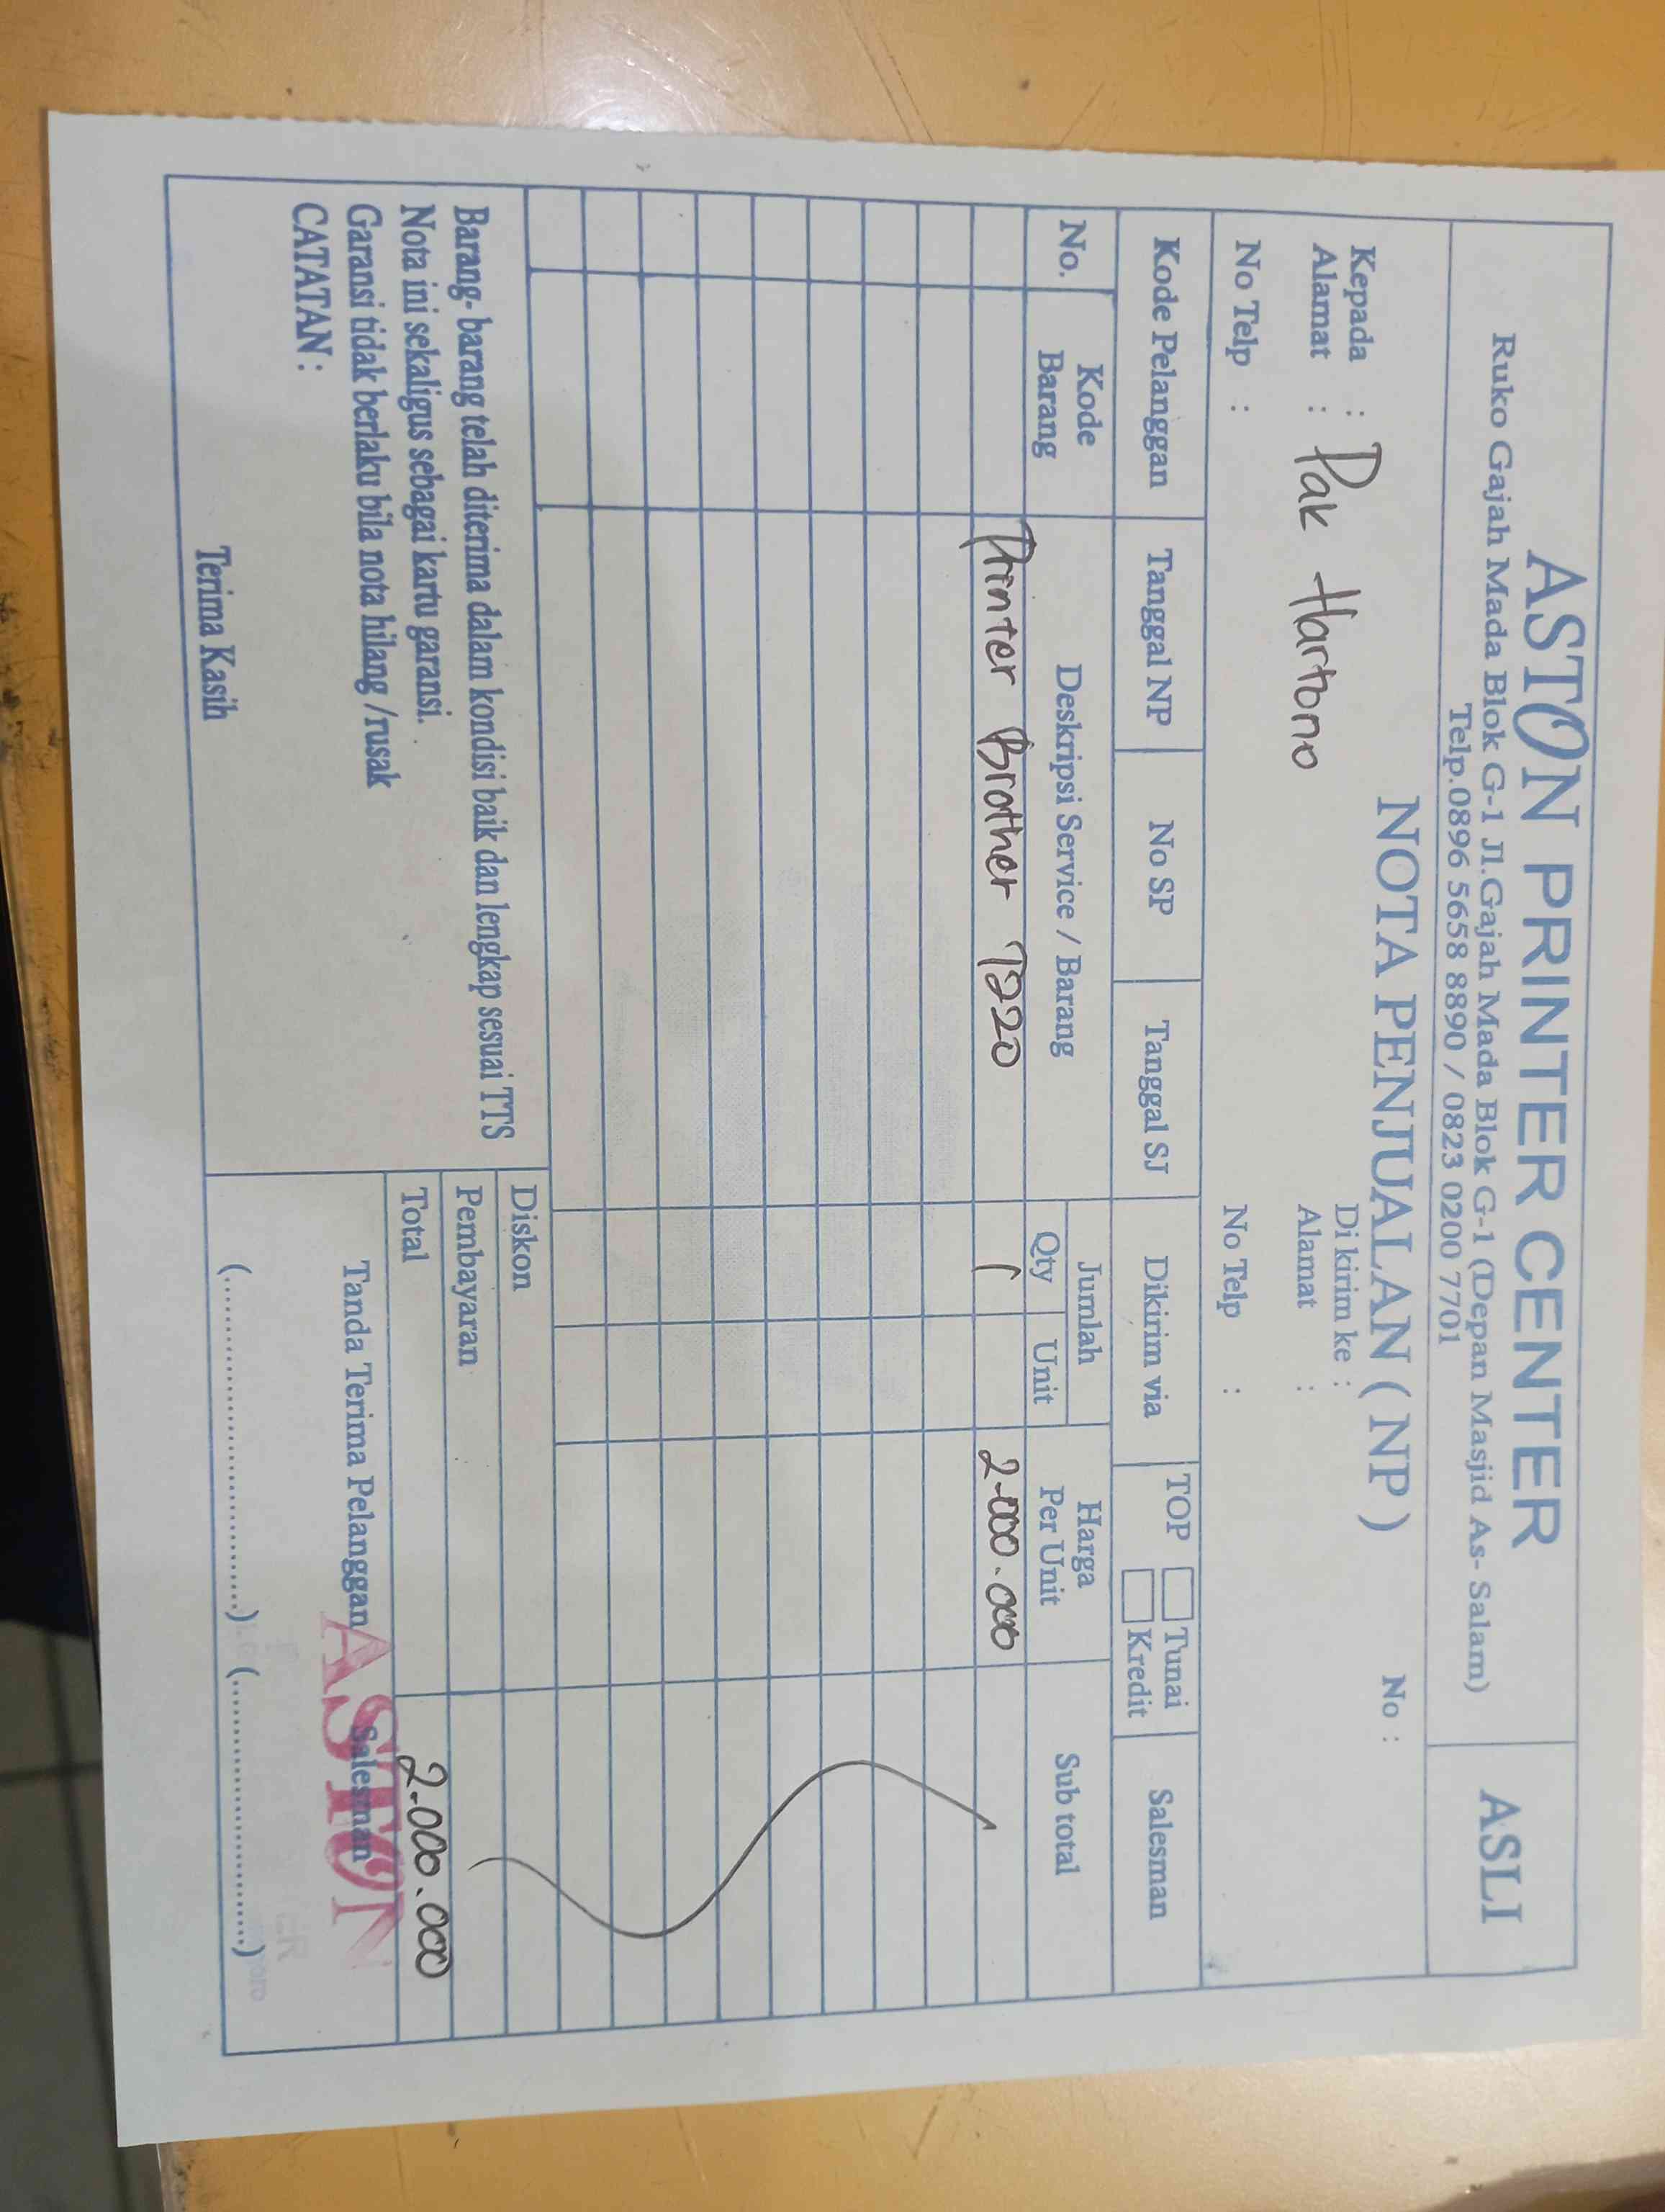 ASTON PRINTER CENTER
Ruko Gajah Mada Blok G-1 Jl.Gajah Mada Blok G-1 (Depan Masjid As- Salam)
Telp.0896 5658 8890 / 0823 0200 7701
ASLI
NOTA PENJUALAN ( NP )
No :
Kepada :
Alamat : Pak Hartono
No Telp :
Di kirim ke :
Alamat :
No Telp :
Kode Pelanggan Tanggal NP No SP Tanggal SJ Dikirim via TOP Tunai Kredit Salesman
No. Kode Barang Deskripsi Service / Barang Jumlah Qty Unit Harga Per Unit Sub total
Printer Brother T220 1 2.000.000
Barang- barang telah diterima dalam kondisi baik dan lengkap sesuai TTS
Nota ini sekaligus sebagai kartu garansi.
Garansi tidak berlaku bila nota hilang /rusak
CATATAN :
Terima Kasih
Diskon
Pembayaran
Total 2.000.000
Tanda Terima Pelanggan Salesman
ASTON
(..............................) (..............................)